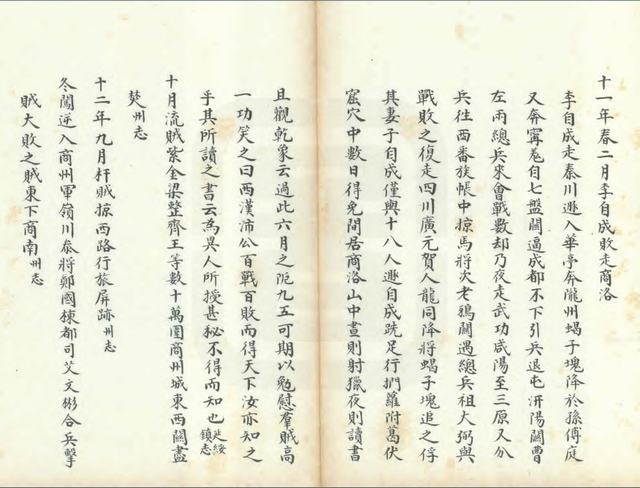 十一年春二月李自成敗走商洛
李自成走秦川遯入華亭奔隴州蝎子塊降於孫傅庭
又奔寗羗自七盤關逼成都不下引兵退屯汧陽關曹
左兩總兵來會戰數却乃夜走武功咸陽至三原又分
兵往西番族帳中掠馬將次老鷄關遇總兵祖大弼與
戰敗之復走四川廣元賀人龍同降將蝎子塊追之俘
其妻子自成僅與十八人遯自成跣足行捫蘿附葛伏
窟穴中數日得免閒居商洛山中晝則射獵夜則讀書
且觀乾象云過此六月之阨九五可期以勉慰羣賊高
一功笑之曰西漢沛公百戰百敗而得天下汝亦知之
乎其所讀之書云爲異人所授甚秘不得而知也延綏鎮志
十月流賊紫金梁整齊王等數十萬圍商州城東西關盡
焚州志
十二年九月杆賊掠西路行旅屏跡州志
冬闖逆入商州軍嶺川叅將鄭國棟都司艾文彬合兵擊
賊大敗之賊東下商南州志